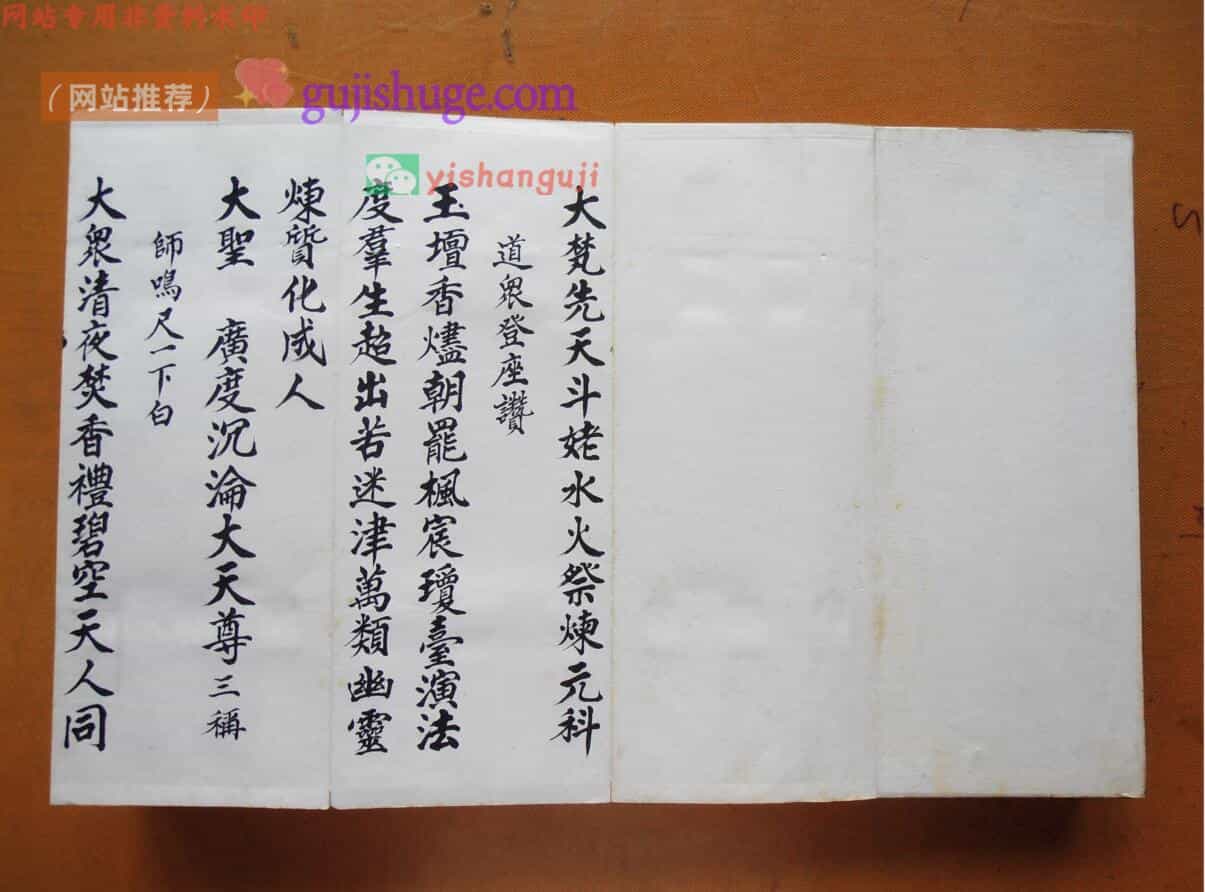 网站专用非资料水印
(网站推荐)
gujishuge.com
yishanguji
大梵先天斗姥水火祭煉元科
道眾登座讚
玉壇香燼朝罷楓宸瓊臺演法
度羣生超出若迷津萬類幽靈
煉質化成人
大聖 廣度沉淪大天尊三稱
師鳴尺一下白
大眾清夜焚香禮碧空天人同